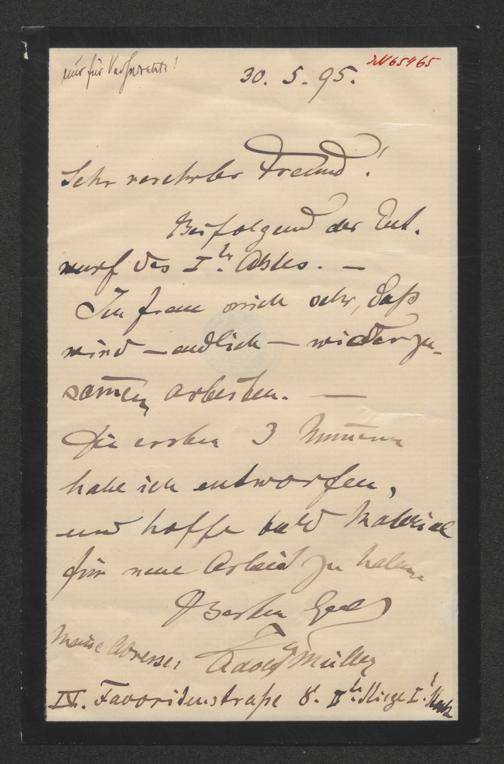 nur für
30. 5. 95.
Sehr verehrter Freund!
Beifolgend der Ent-
wurf des I.ten Aktes. —
Ich freue mich sehr, daß
wir nun — endlich — wieder zu-
samen arbeiten. —
Die ersten 3 Numern
habe ich entworfen,
und hoffe bald Material
für neue Arbeit zu haben
Besten Gruß
Adolf Müller
Meine Adresse:
IV. Favoritenstraße 8. II.te Stiege I.